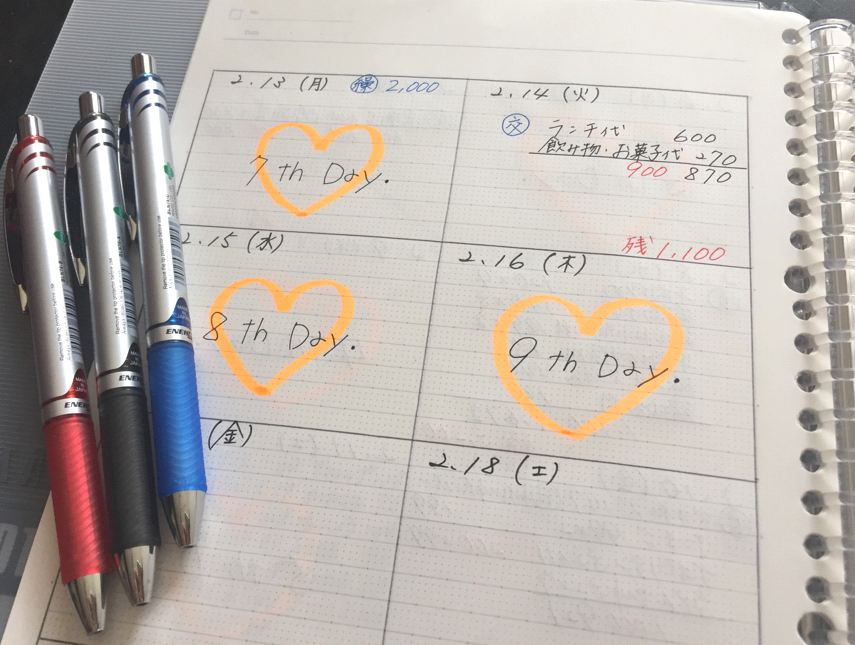 2.13 (月) 繰 2,000
7th Day.
2.14 (火)
交 ランチ代 600
飲み物・お菓子代 270
900 870
残 1,100
2.15 (水)
8th Day.
2.16 (木)
9th Day.
(金)
2.18 (土)
ENERGEL
ENER
ENE